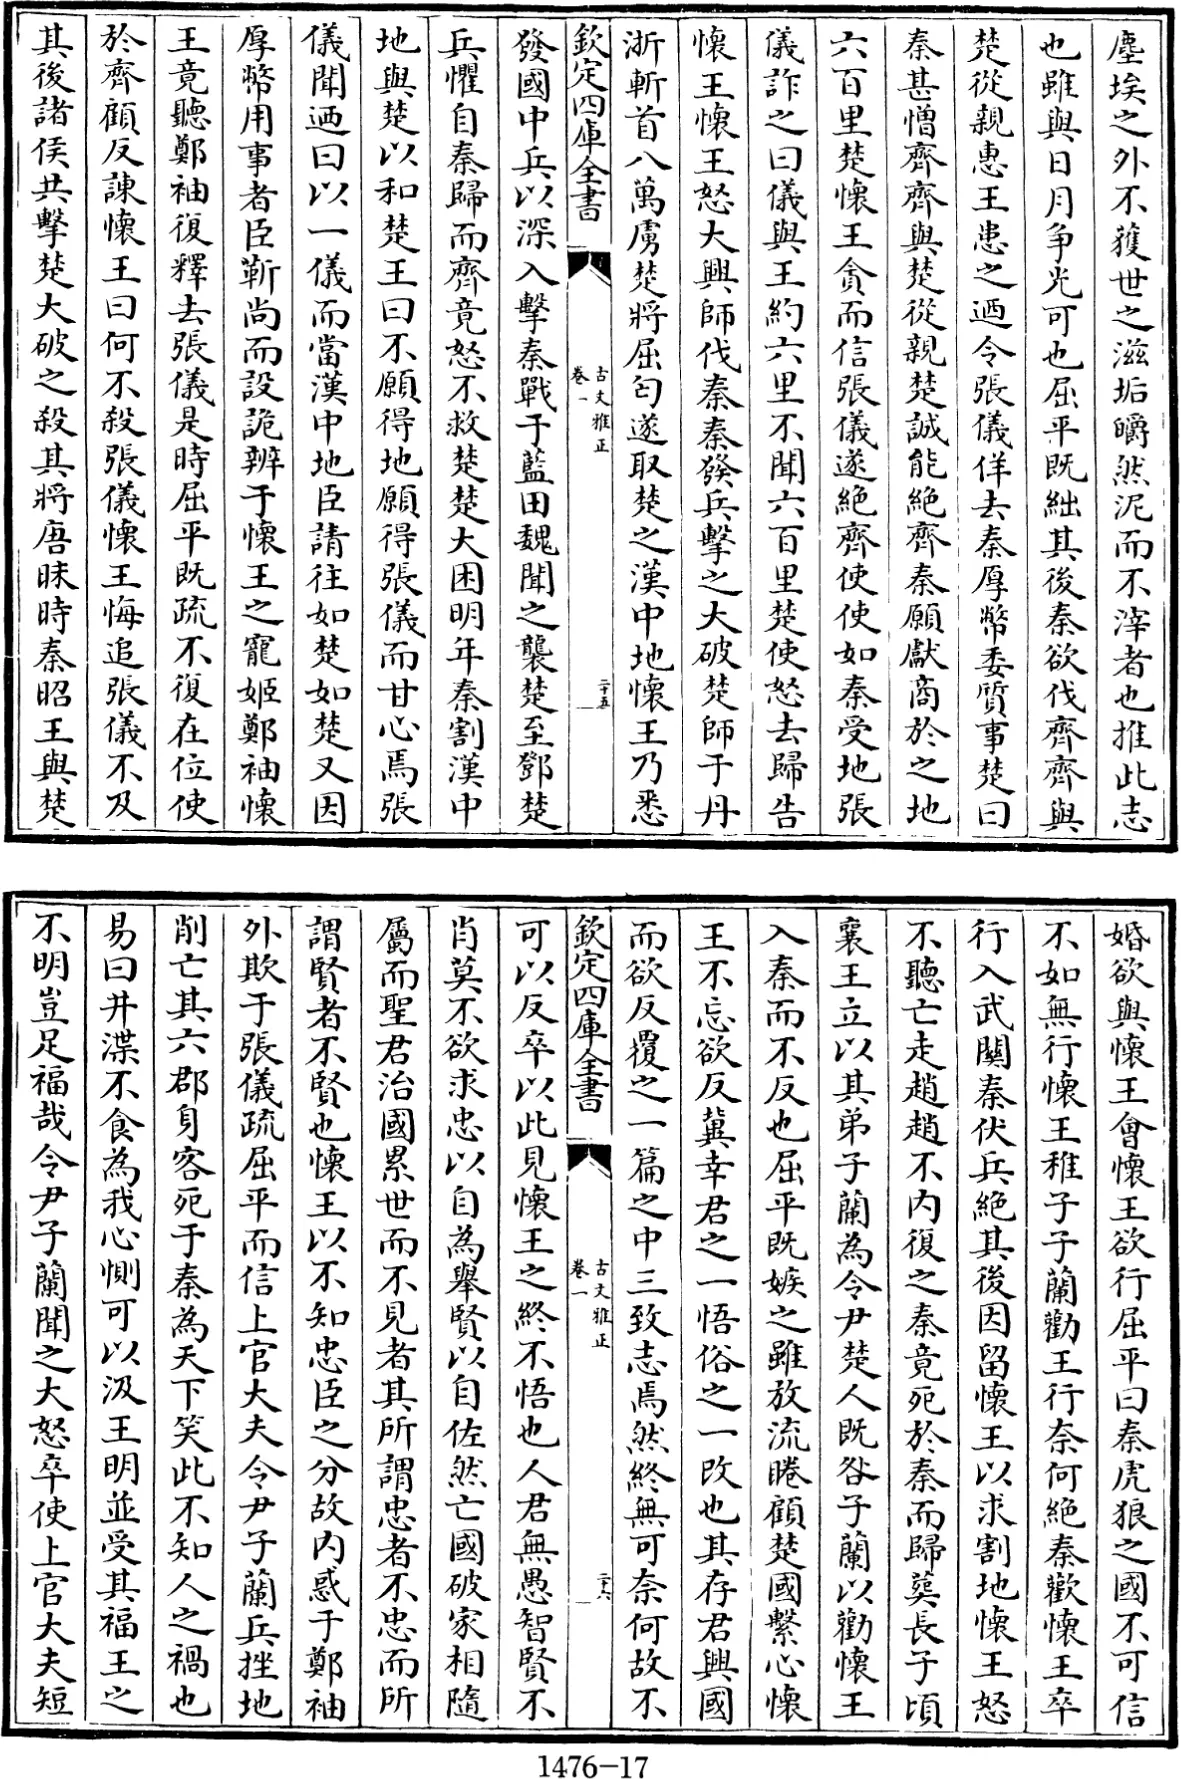 塵埃之外不獲世之滋垢皭然泥而不滓者也推此志
也雖與日月争光可也屈平既絀其後秦欲伐齊齊與
楚從親惠王患之迺令張儀佯去秦厚幣委質事楚曰
秦甚憎齊齊與楚從親楚誠能絶齊秦願獻商於之地
六百里楚懷王貪而信張儀遂絶齊使使如秦受地張
儀詐之曰儀與王約六里不聞六百里楚使怒去歸告
懷王懷王怒大興師伐秦秦發兵擊之大破楚師于丹
淅斬首八萬虜楚將屈匄遂取楚之漢中地懷王乃悉
欽定四庫全書
古文雅正
卷一
二十五
發國中兵以深入擊秦戰于藍田魏聞之襲楚至鄧楚
兵懼自秦歸而齊竟怒不救楚楚大困明年秦割漢中
地與楚以和楚王曰不願得地願得張儀而甘心焉張
儀聞迺曰以一儀而當漢中地臣請往如楚如楚又因
厚幣用事者臣靳尚而設詭辨于懷王之寵姬鄭袖懷
王竟聽鄭袖復釋去張儀是時屈平既疏不復在位使
於齊顧反諫懷王曰何不殺張儀懷王悔追張儀不及
其後諸侯共擊楚大破之殺其將唐昧時秦昭王與楚
婚欲與懷王會懷王欲行屈平曰秦虎狼之國不可信
不如無行懷王稚子子蘭勸王行奈何絶秦歡懷王卒
行入武關秦伏兵絶其後因留懷王以求割地懷王怒
不聽亡走趙趙不内復之秦竟死於秦而歸葬長子頃
襄王立以其弟子蘭為令尹楚人既咎子蘭以勸懷王
入秦而不反也屈平既嫉之雖放流睠顧楚國繫心懷
王不忘欲反冀幸君之一悟俗之一改也其存君興國
而欲反覆之一篇之中三致志焉然終無可奈何故不
欽定四庫全書
古文雅正
卷一
二十六
可以反卒以此見懷王之終不悟也人君無愚智賢不
肖莫不欲求忠以自為舉賢以自佐然亡國破家相隨
屬而聖君治國累世而不見者其所謂忠者不忠而所
謂賢者不賢也懷王以不知忠臣之分故内惑于鄭袖
外欺于張儀疏屈平而信上官大夫令尹子蘭兵挫地
削亡其六郡身客死于秦為天下笑此不知人之禍也
易曰井渫不食為我心惻可以汲王明並受其福王之
不明豈足福哉令尹子蘭聞之大怒卒使上官大夫短
1476-17